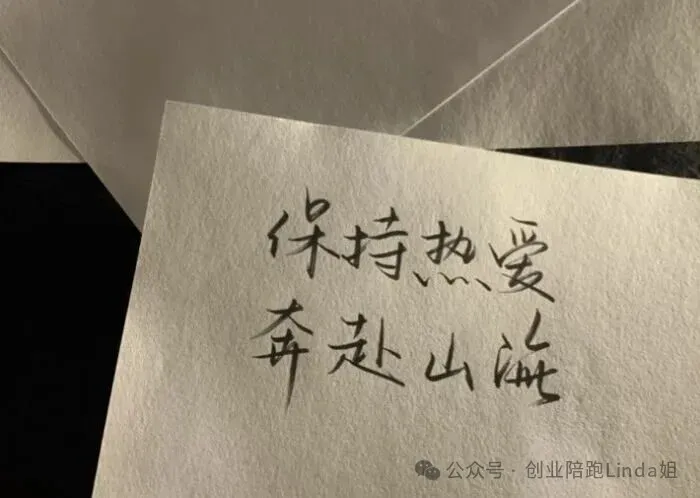 保持热爱
奔赴山海
公众号 · 创业陪跑Linda姐